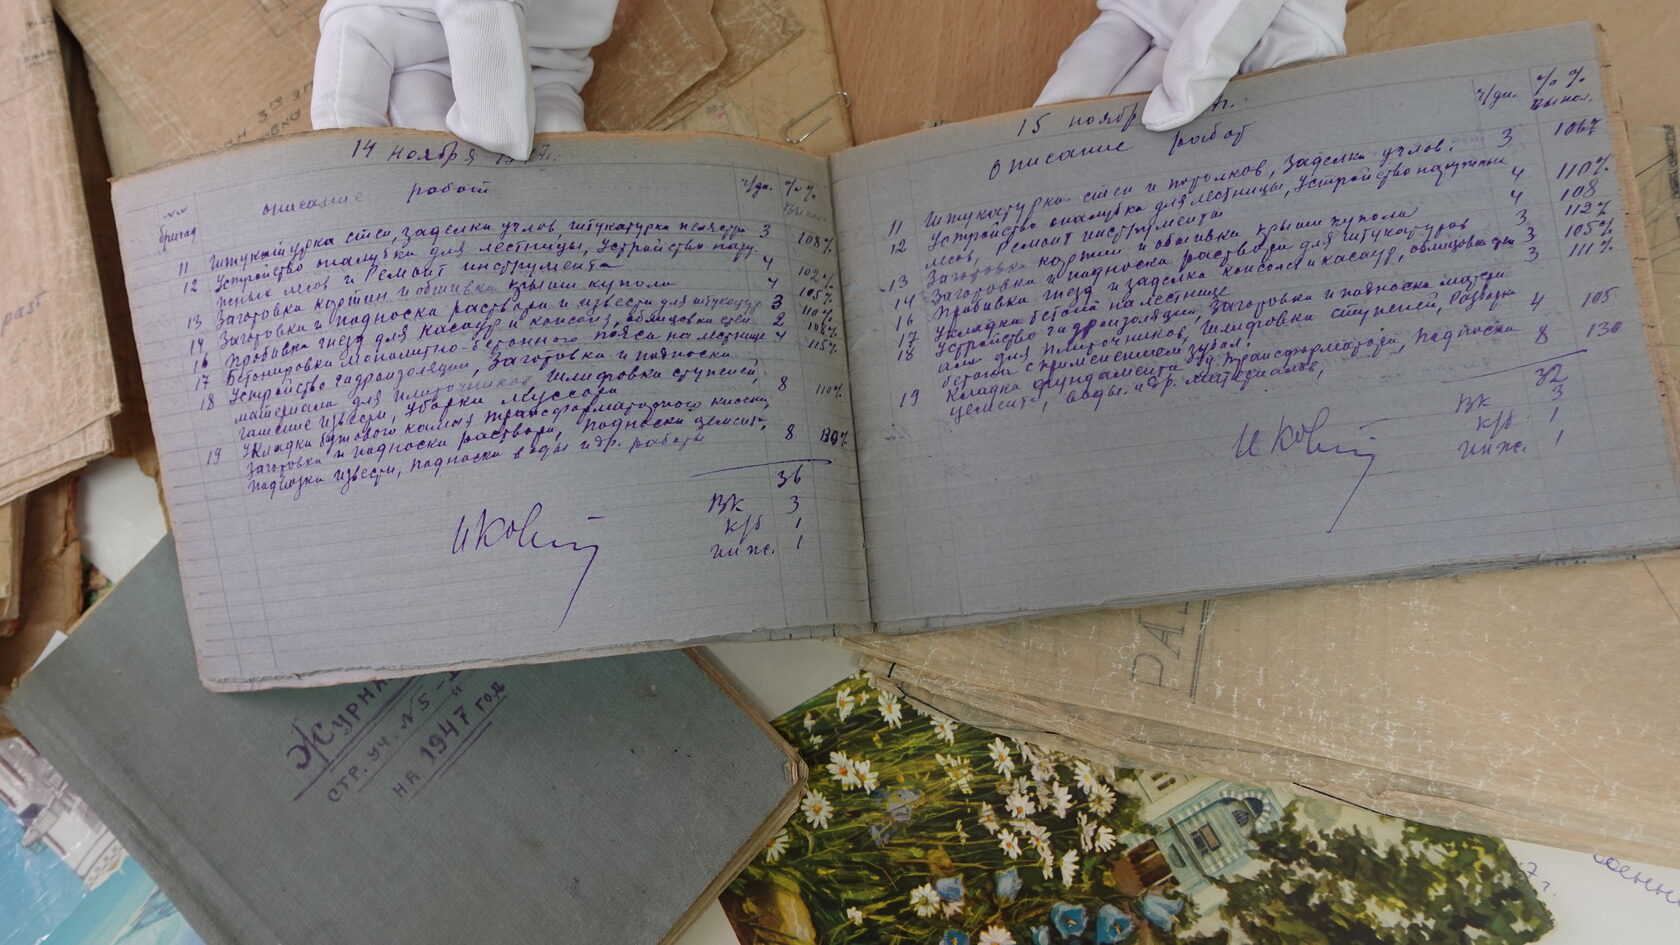 14 ноября
описание работ
ч/дн. % %
№№
бригад
вып.
11 Штукатурка стен, заделка углов, штукатурка 3 108%
12 Устройство опалубки для лестницы, Устройство нару-
жных лесов и Ремонт инструмента 4 102%
13 Заготовка картин и обшивка крыши купола 4 105%
14 Заготовка и подноска раствора и извести для штукатур. 3 110%
16 Пробивка гнезд для касаур и консоля, облицовка стен 2 108%
17 Бетонировка монолитно-бетонного пояса на лестнице 4 115%
18 Устройство гидроизоляции, Заготовка и подноска
материала для плиточников, Шлифовка ступеней,
гашение извести, Уборка Муссора 8 110%
19 Укладка бутового камня трансформаторного киоска,
Заготовка и подноска раствора, подноска цемента,
подвозка извести, подноска воды и др. работы 8 130%
36
ВК 3
к/б 1
инж. 1
15 ноября
г.
Описание работ
ч/дн. % %
вып.
11 Штукатурка стен и потолков, Заделка углов. 3 106%
12 Устройство опалубки для лестницы, Устройство наружных
лесов, Ремонт инструмента 4 110%
13 Заготовка картин и обшивка крыши купола 4 108
14 Заготовка и подноска раствора для штукатуров 3 112%
16 Пробивка гнезд и заделка консоля и касаур, облицовка стен 3 105%
17 Укладка бетона на лестнице 3 111%
18 Устройство гидроизоляции, Заготовка и подноска
для плиточников, Шлифовка ступеней, Разборка
бетона с применением зубил. 4 105
19 Кладка фундамента под трансформатора, Подноска
цемента, воды и др. материалов, 8 130
32
ВК 3
к/б 1
инж. 1
Журна
СТР. УЧ. №5-
НА 1947 ГОД
РА